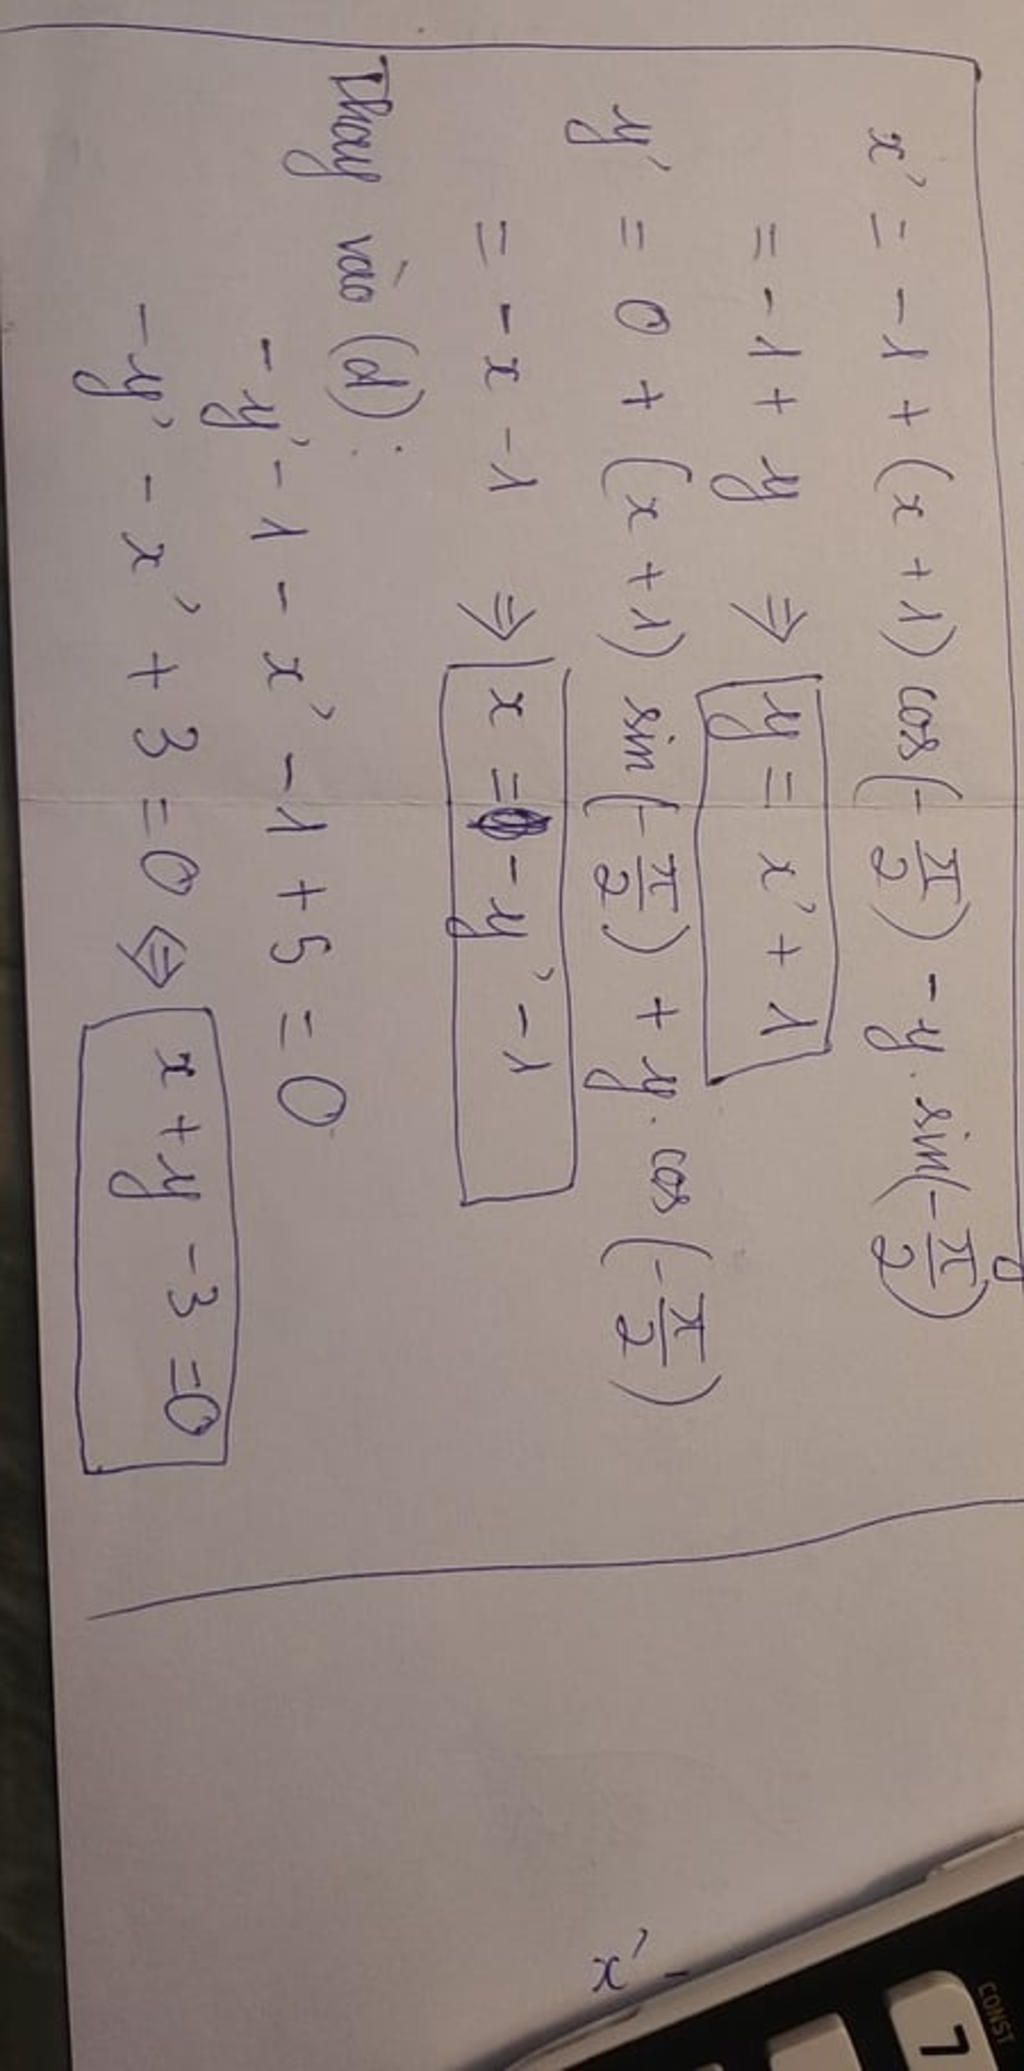 x' = -1 + (x + 1) cos(-π/2) - y. sin(-π/2)
= -1 + y ⇒ y = x' + 1
y' = 0 + (x + 1) sin(-π/2) + y. cos(-π/2)
= -x -1 ⇒ x = -y' -1
Thay vào (d):
-y' -1 - x' -1 + 5 = 0
-y' - x' + 3 = 0 ⇔ x + y -3 =0
- x'
CONST
7